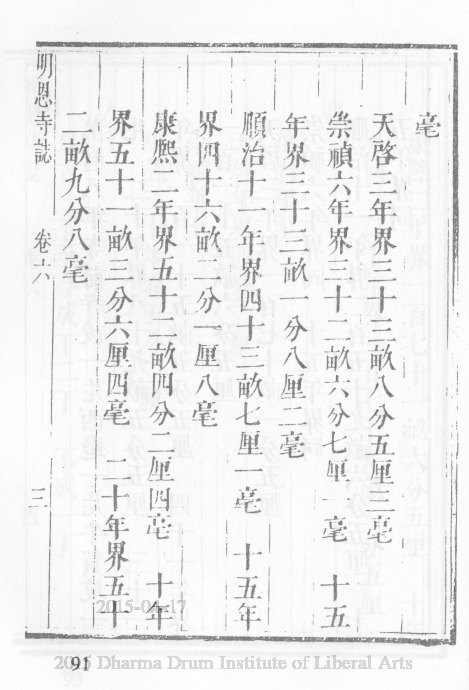 毫
天啓三年界三十三畝八分五厘三毫
崇禎六年界三十二畝六分七厘 毫 十五
年界三十三畝一分八厘二毫
順治十一年界四十三畝七厘一毫 十五年
界四十六畝二分一厘八毫
康熙二年界五十二畝四分二厘四毫 十年
界五十一畝三分六厘四毫 二十年界五十
二畝九分八毫
明恩寺誌 卷六 三
91
2015-04-17
2011 Dharma Drum Institute of Liberal Arts